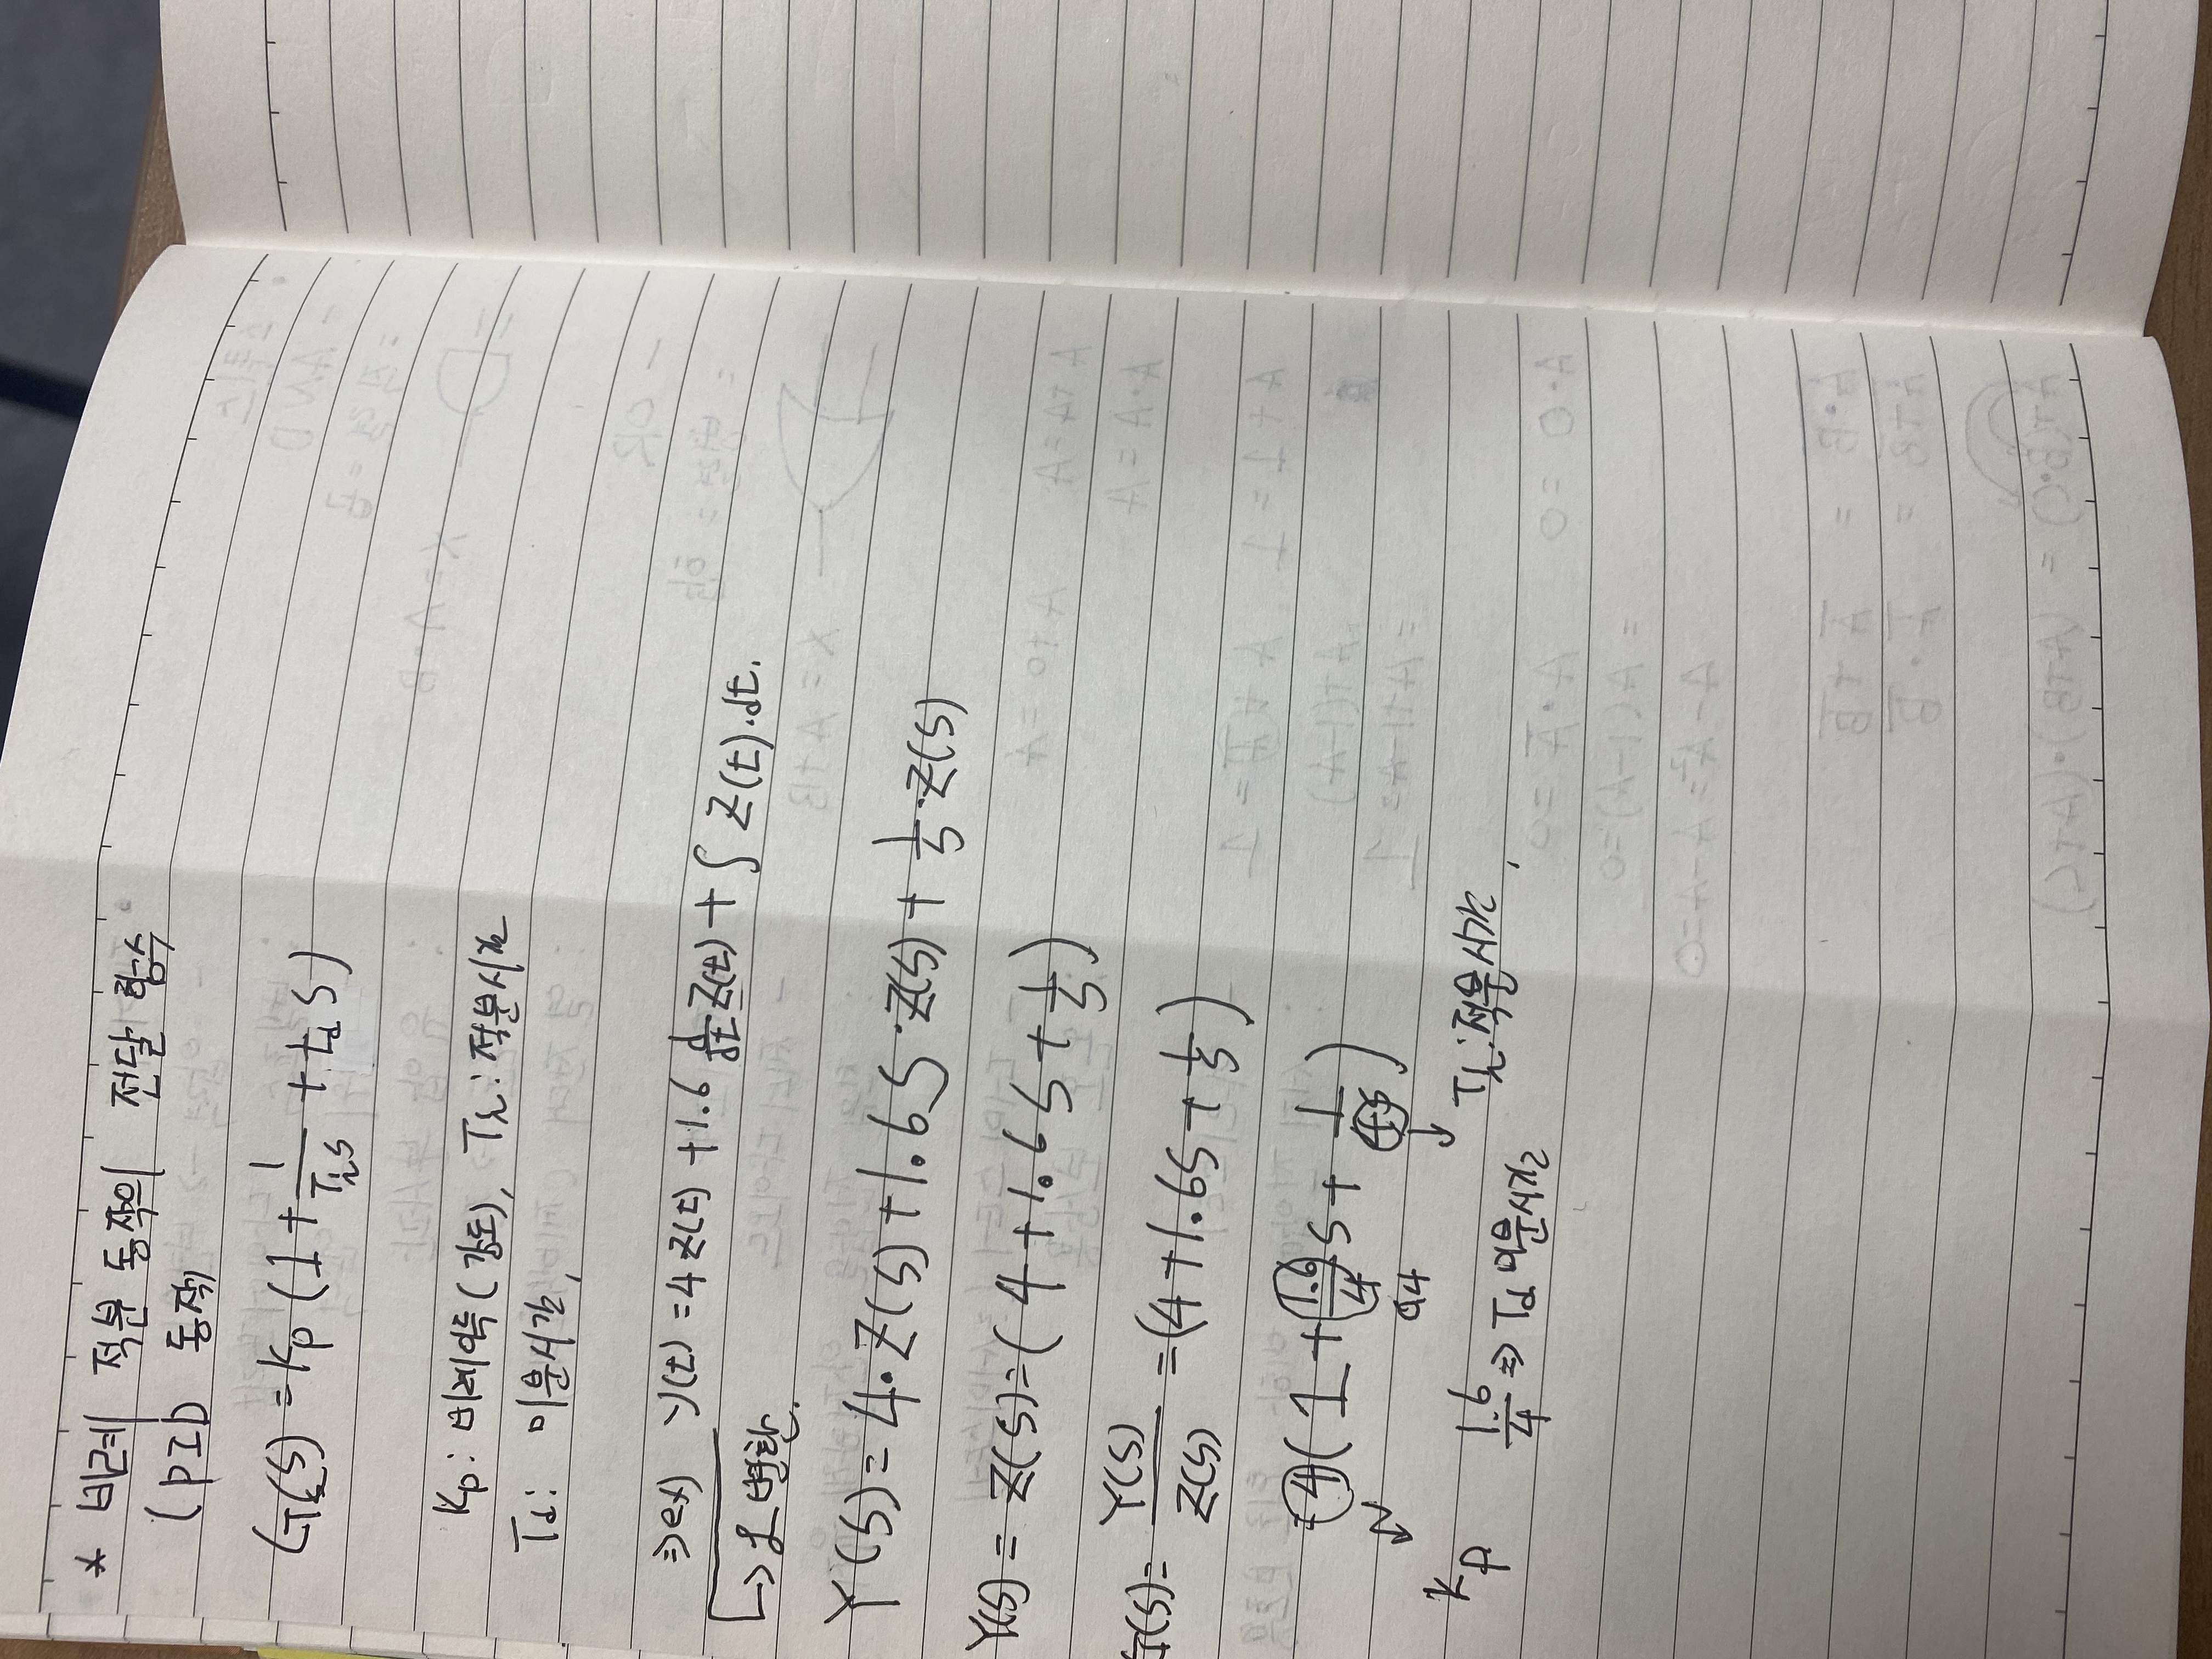 * 비례 적분 동작의 전달 함수
(PID 동작)
G(s) = Kp (1 + 1/Tis + tds)
Kp : 비례이득 (감도), Ti : 적분시간
Td : 미분시간,
⇒ex) y(t) = 4z(t) + 1.6 d/dt z(t) + ∫ z(t)·dt.
↳ℒ변환.
Y(s) = 4·Z(s) + 1.6S·Z(s) + 1/S·Z(s)
Y(s) = Z(s)=(4 + 1.6S + 1/S)
G(s)= Y(s)/Z(s) =(4+1.6S + 1/S)
=4(1 + 1.6/4 S + 1/4S)
0.4
Kp
1.6/4 ⇒ Td 미분시간
Ti : 적분시간,